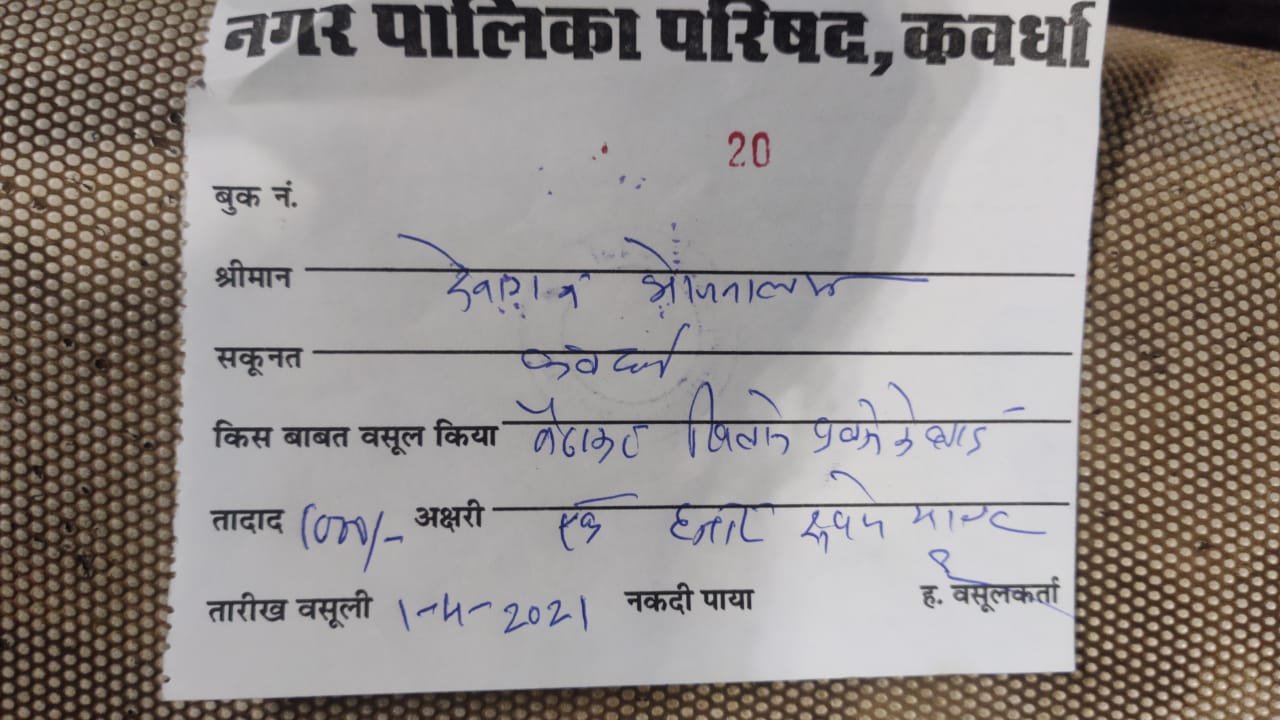 नगर पालिका परिषद, कवर्धा
20
बुक नं.
श्रीमान भोजनालय
सकूनत कवर्धा
किस बाबत वसूल किया
तादाद 1000/- अक्षरी एक हजार रूपये मात्र
तारीख वसूली 1-4-2021 नकदी पाया ह. वसूलकर्ता